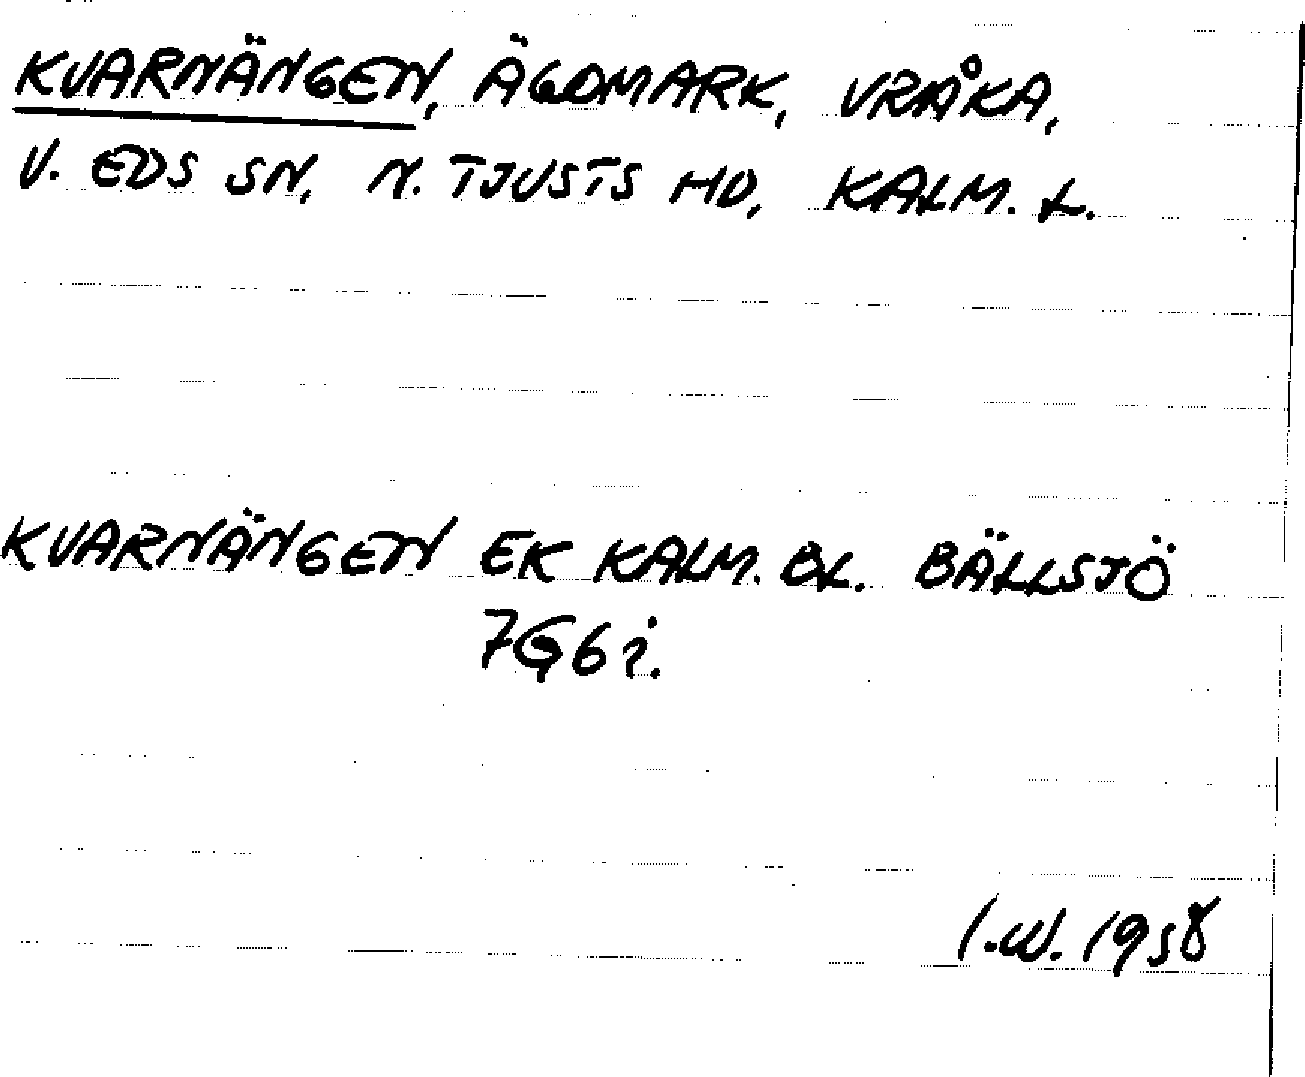 KVARNÄNGEN, ÄGOMARK, VRÅKA,
V. EDS SN, N. TJUSTS HD, KALM. L.
KVARNÄNGEN EK KALM. BL. BÄLLSJÖ
7G6i.
I.W. 1958